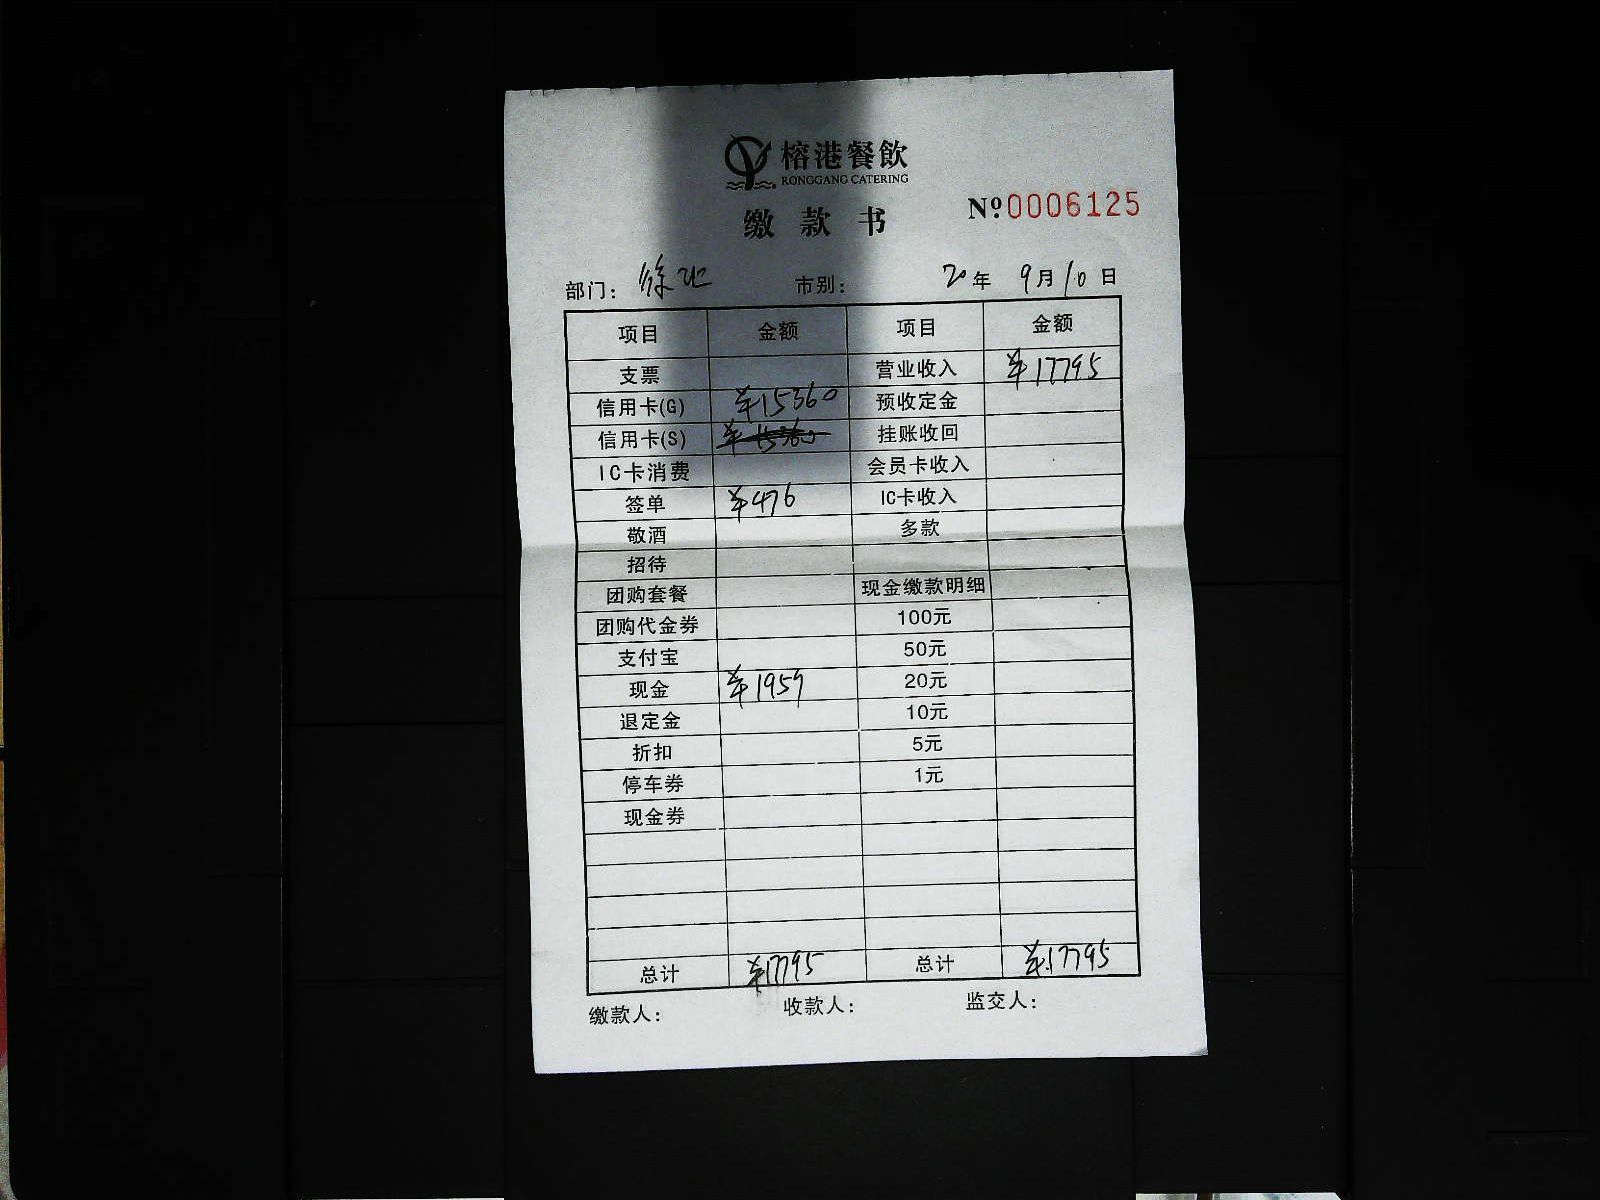 榕港餐飲
RONGGANG CATERING
缴款书
№0006125
部门：徐汇 市别： 20年 9月10日
项目 金额 项目 金额
支票 营业收入 ¥17795
信用卡(G) ¥15360 预收定金
信用卡(S) ¥15360 挂账收回
IC卡消费 会员卡收入
签单 ¥476 IC卡收入
敬酒 多款
招待
团购套餐 现金缴款明细
团购代金券 100元
支付宝 50元
现金 ¥1959 20元
退定金 10元
折扣 5元
停车券 1元
现金券
总计 ¥17795 总计 ¥17795
缴款人： 收款人： 监交人：